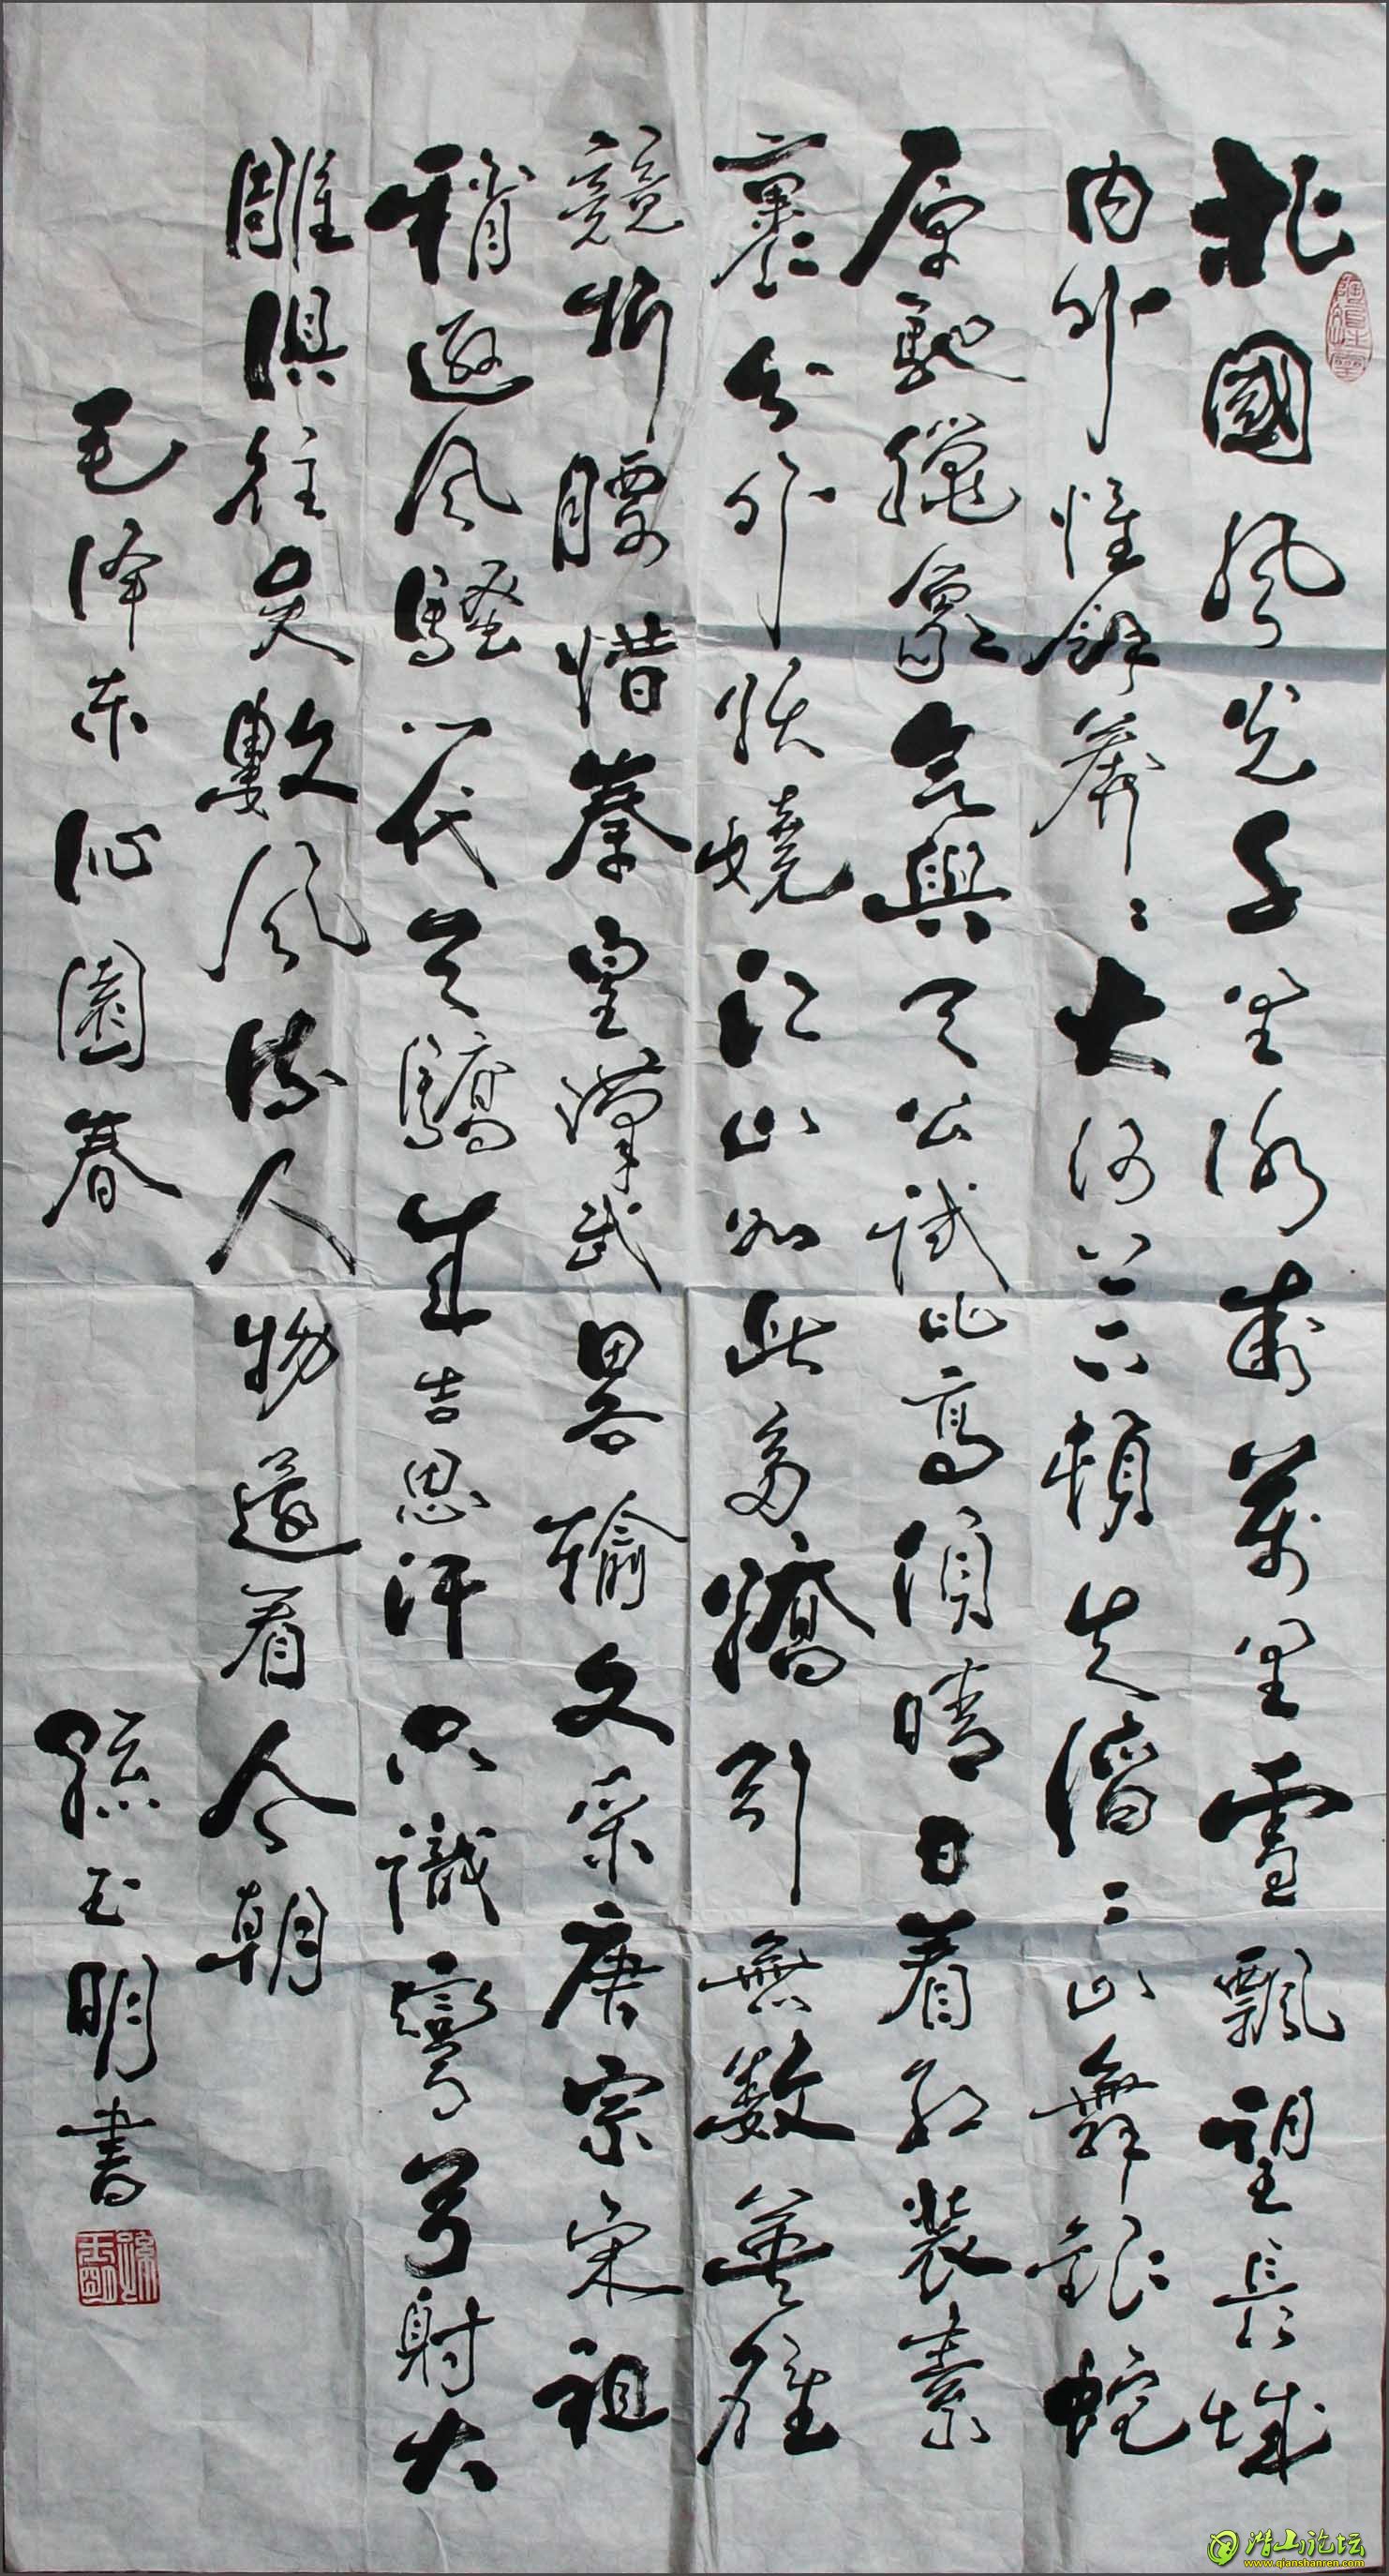 北國風光千里冰封萬里雪飄望長城
内外惟餘莽〻大河上下頓失滔〻山舞銀蛇
原馳蠟象欲與天公試比高須晴日看紅裝素
裹分外妖嬈江山如此多嬌引無數英雄
競折腰惜秦皇漢武畧輸文采唐宗宋祖
稍遜風騷一代天驕成吉思汗只識彎弓射大
雕俱往矣數風流人物還看今朝
毛泽东沁園春
孫玉明書
孫玉明
潜山论坛
www.qianshanren.com